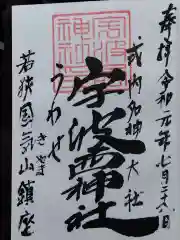 奉拝 令和元年七月二十六日
式内名神大社
宇波西神社
うわせ
若狭国気山鎮座
きやま
宇波西神社